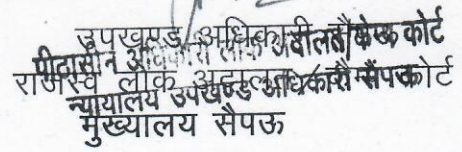 उपखण्ड अधिकारी
पीठासीन अधिकारी लोक अदालत/केम्प कोर्ट
राजस्व लोक अदालत कोर्ट
न्यायालय उपखण्ड अधिकारी सैंपऊ
मुख्यालय सैपऊ